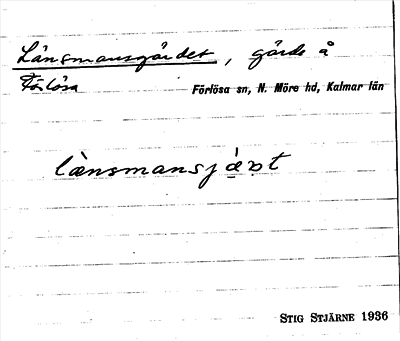 Länsmansgärdet, gärde å
Förlösa Förlösa sn, N. Möre hd, Kalmar län
länsmansjäṛt
STIG STJÄRNE 1936